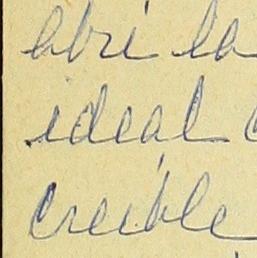 abrí la
ideal
creíble